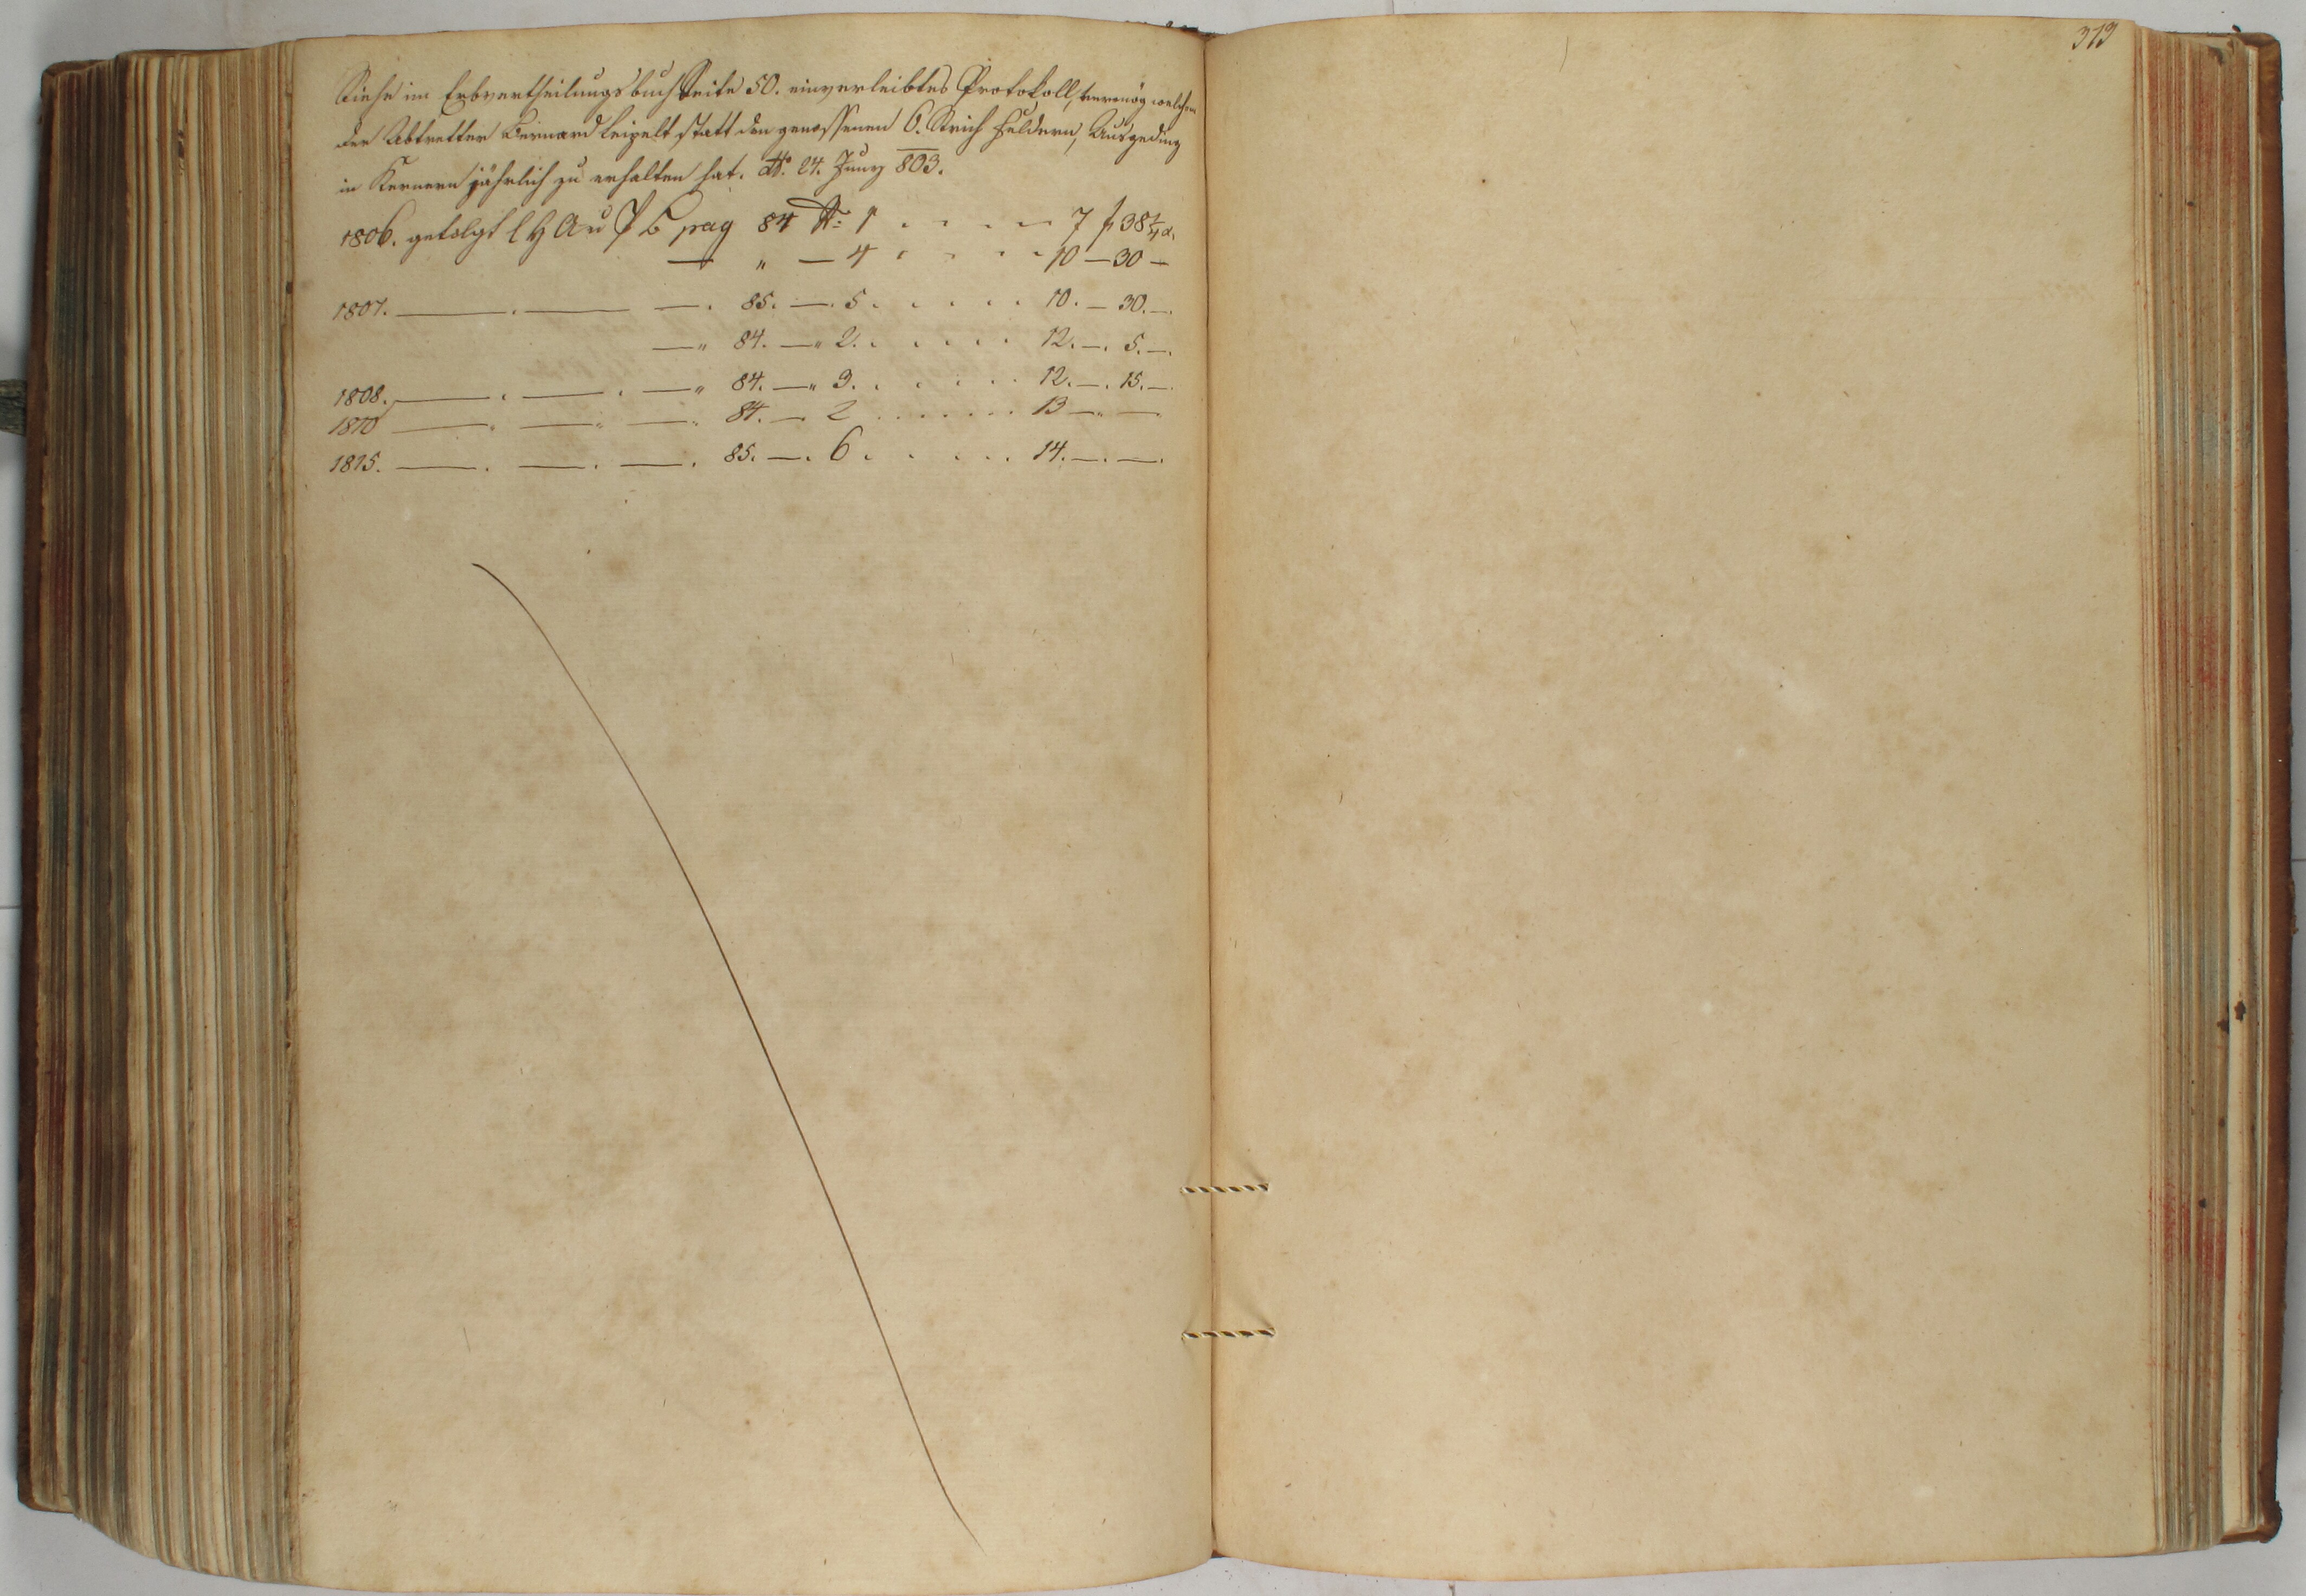 Siehe im Erbvertheilungsbuch Seite 50. einverleibtes Protokoll, vermög welchem
der Abtretter Bernard Leipelt statt den genossenen 6. Strich Feldern, Ausgeding
in Kernern jährlich zu erhalten hat. dto. 24. Juny 803.
1806. gefolgt pag 84 No 1 . . . . 7 f 38 1/4 x.
— " — 4 . . . . 10 — 30 —
1807. — . — — . 85. — . 5 . . . . . 10. — 30. —.
— " 84. — " 2. . . . . . 12. —. 5. —.
1808. — . — . — " 84. — " 3. . . . . . 12. —. 15. —.
1810 — " — " — " 84. — 2 . . . . . . 13 — " —
1815. — . — . — . 85. — . 6 . . . . . 14. —. —.
319